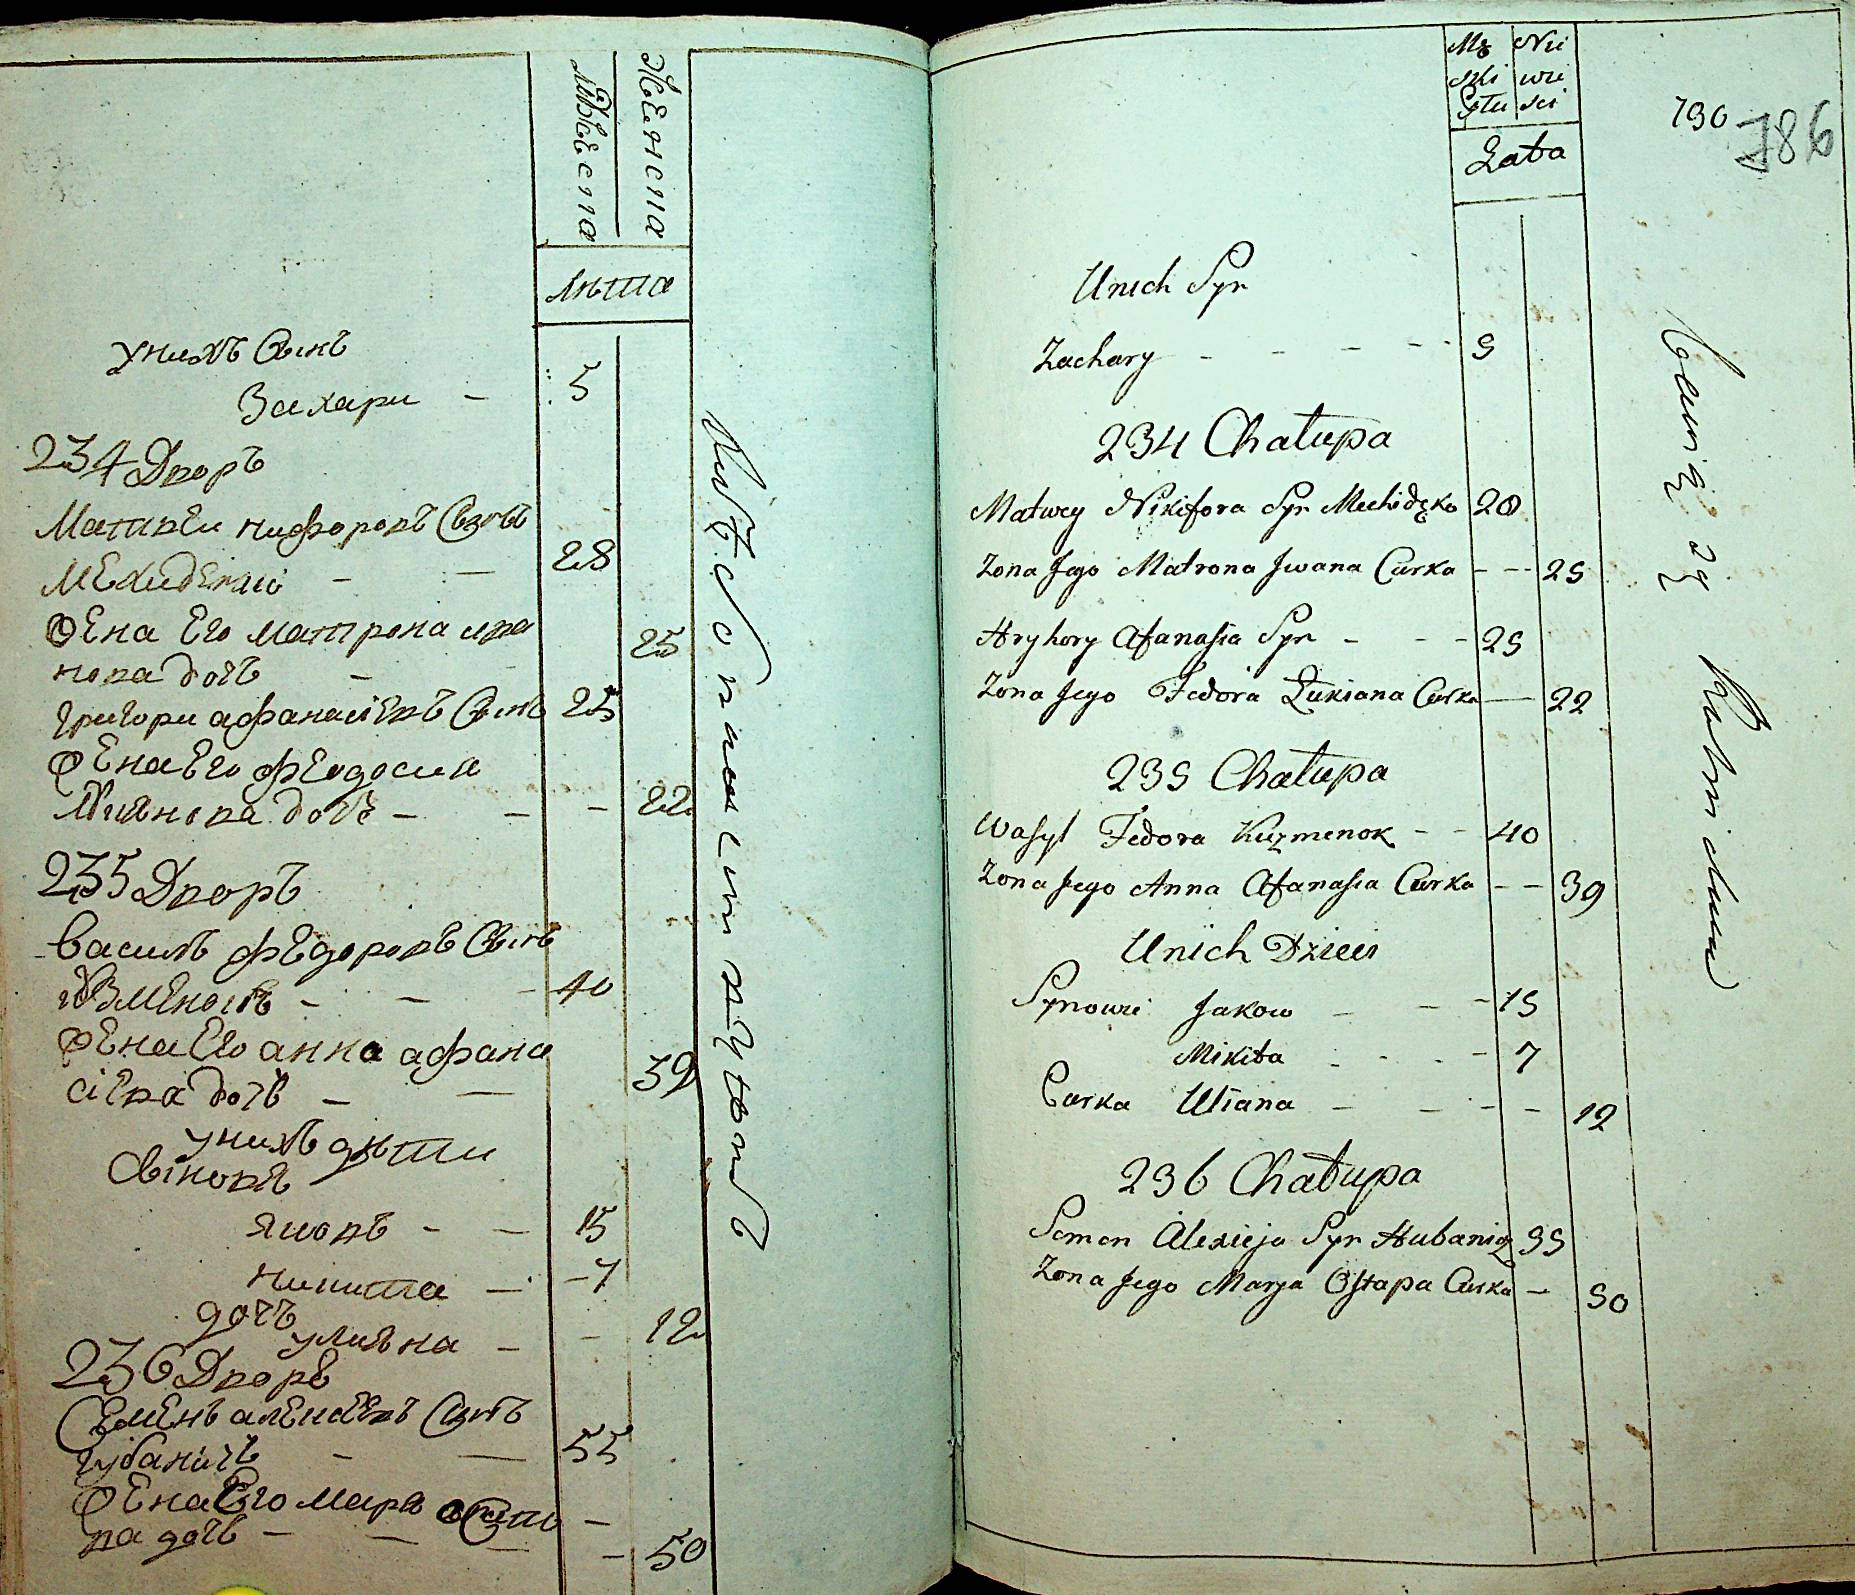 Мужеска
Женска
лѣта
унихъ Сынъ
Захари — 5
234 Дворъ
Матвеи никфоровъ Сынъ
Мехиденко — — 28
жена Его матрона ива
нова дочь — 25
григори афанасіевъ Сынъ 25
жена Его феодосия
лукиянова дочь — — — 22
235 Дворъ
василь федоровъ Сынъ
кузменокъ — — — 40
жена Его анна афана
сіева дочь — — 39
унихъ дѣти
Сыновя
яковъ — — 15
никита — — 7
дочь
улияна — — 12
236 Дворъ
Семенъ алексѣевъ Сынъ
губаничъ — — 55
жена Его маря остапо —
ва дочь — — — — 50
Mę Nie
ski wie
Płci ści
Lata
790
786
Unich Syn
Zachary - - - - - 5
234 Chałupa
Matwey Nikifora Syn Mechidęko 28
Zona Jego Matrona Jwana Curka - - - 25
Hryhory Afanasia Syn - - - 25
Zona Jego Fedora Łukiana Curka — 22
235 Chałupa
Wasyl Fedora Kuzmenok - - 40
Zona Jego Anna Afanasia Curka - - 39
Unich Dzieci
Synowie Jakow - - - 15
Mikita - - - - 7
Curka Uliana - - - - 12
236 Chałupa
Semen Alexieja Syn Hubanicz 55
Zona Jego Marya Ostapa Curka — 50